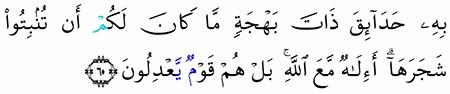 بِهِۦ حَدَآئِقَ ذَاتَ بَهْجَةٍ مَّا كَانَ لَكُمْ أَن تُنۢبِتُوا۟
شَجَرَهَآ ۗ أَءِلَـٰهٌ مَّعَ ٱللَّهِ ۚ بَلْ هُمْ قَوْمٌ يَعْدِلُونَ ﴿٦٠﴾